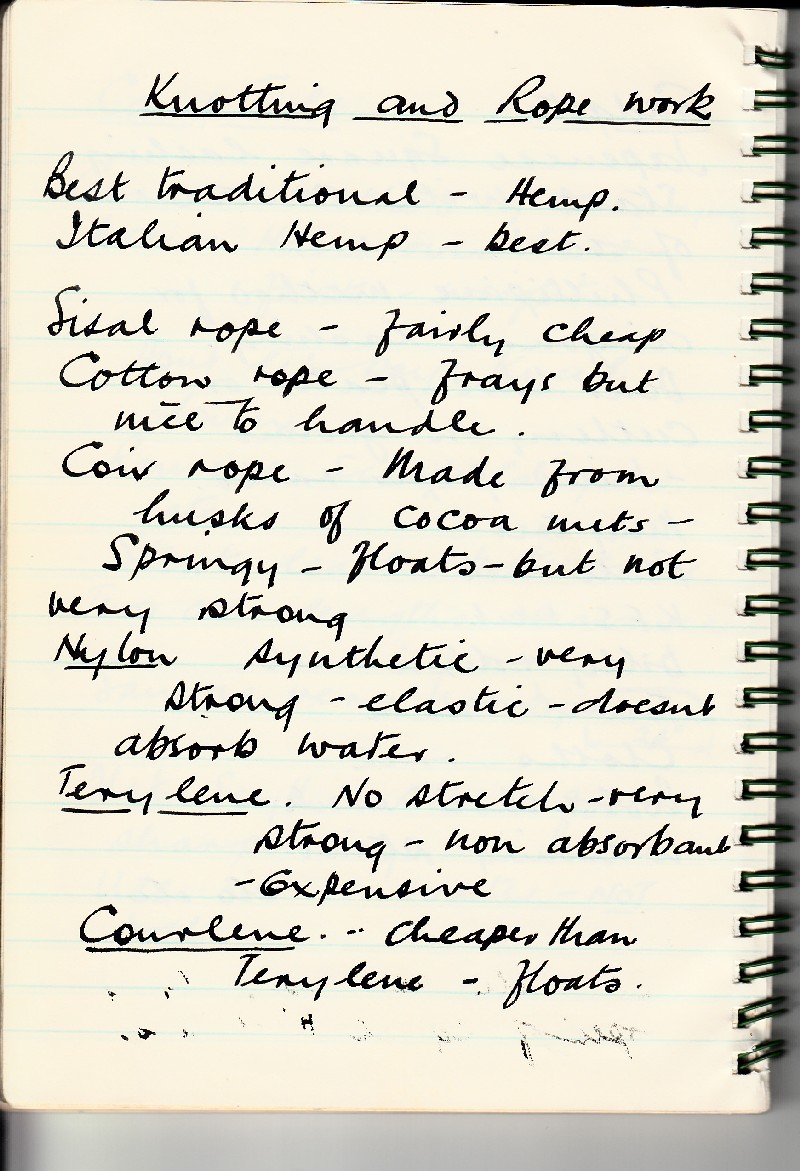 Knotting and Rope work
Best traditional - Hemp.
Italian Hemp - best.
Sisal rope - fairly cheap
Cotton rope - frays but
nice to handle.
Coir rope - Made from
husks of cocoa nuts -
Springy - floats - but not
very strong
Nylon synthetic - very
strong - elastic - doesnt
absorb water.
Terylene. No stretch - very
strong - non absorbant
- Expensive
Courlene. -- cheaper than
Terylene - floats.